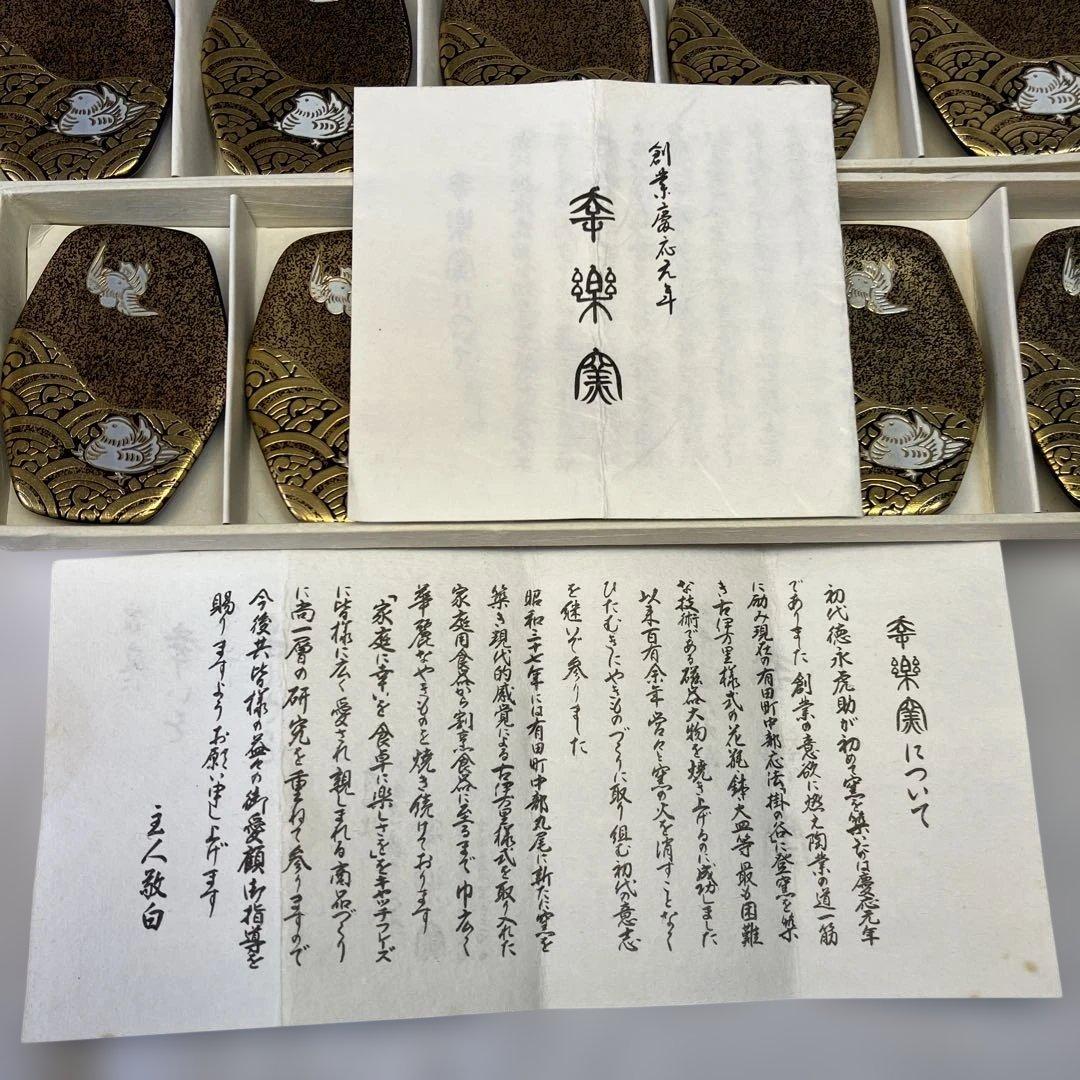 創業慶応元年
幸樂窯
幸樂窯について
初代徳永虎助が初めて窯を築いたのは慶応元年
でありました 創業の意欲に燃え陶業の道一筋
に励み現在の有田町中部応法、掛の谷に登窯を築
き古伊万里様式の花瓶、鉢、大皿等 最も困難
な技術である磁器大物を焼き上げるのに成功しました
以来百有余年 営々と窯の火を消すことなく
ひたむきにやきものづくりに取り組む初代の意志
を継いで参りました
昭和二十七年には有田町中部丸尾に新たに窯を
築き現代的感覚による古伊万里様式を取り入れた
家庭用食器から割烹食器に至るまで巾広く
華麗なやきものを焼き続けております
「家庭に幸いを 食卓に楽しさを」をキャッチフレーズ
に皆様に広く愛され親しまれる商品づくり
に尚一層の研究を重ねて参りますので
今後共皆様の益々の御愛顧御指導を
賜りますようお願い申し上げます
主人敬白